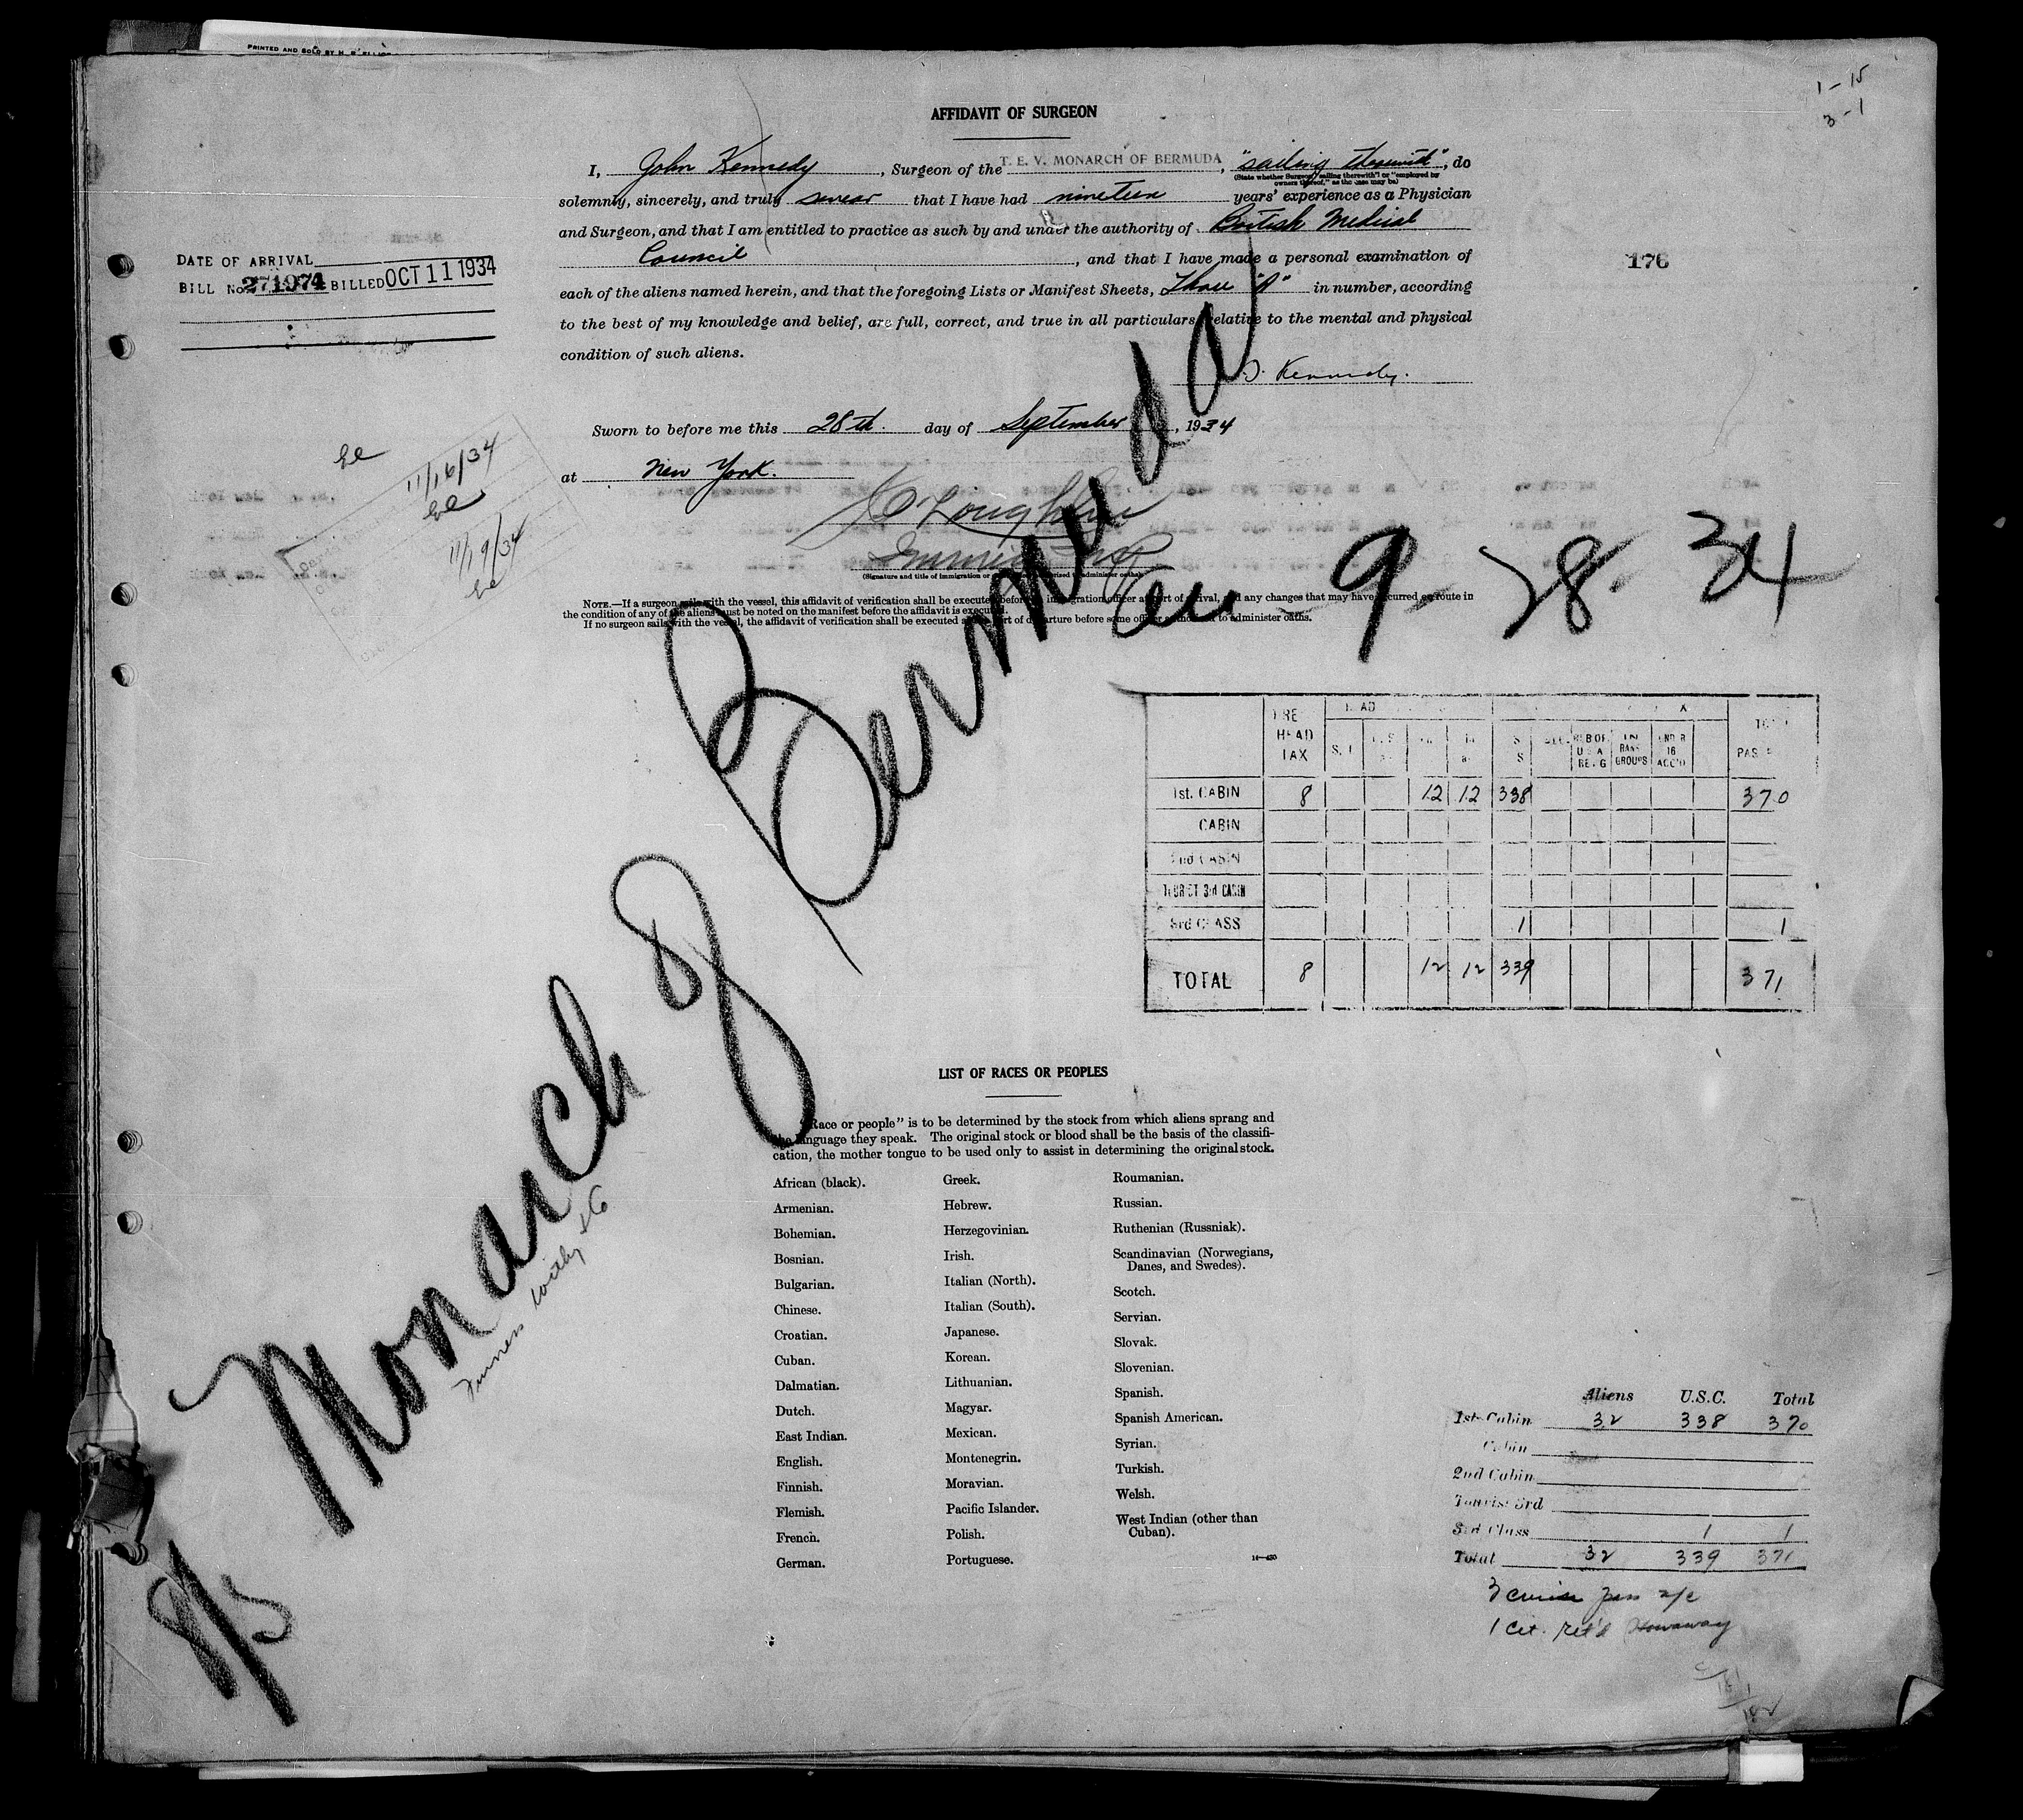 PRINTED AND SOLD BY
1-15
3-1
AFFIDAVIT OF SURGEON
I, John Kennedy, Surgeon of the T. E. V. MONARCH OF BERMUDA, "sailing therewith", do
(State whether Surgeon "sailing therewith" or "employed by
owners thereof," as the case may be)
solemnly, sincerely, and truly swear that I have had nineteen years' experience as a Physician
and Surgeon, and that I am entitled to practice as such by and under the authority of British Medical
Council, and that I have made a personal examination of
each of the aliens named herein, and that the foregoing Lists or Manifest Sheets, Three "A" in number, according
to the best of my knowledge and belief, are full, correct, and true in all particulars relative to the mental and physical
condition of such aliens.
J. Kennedy.
DATE OF ARRIVAL
BILL No. 271974 BILLED OCT 11 1934
176
Sworn to before me this 28th. day of September, 1934
at New York.
11/16/34
11/19/34
(Signature and title of immigration or authorised to administer oaths)
NOTE.—If a surgeon sails with the vessel, this affidavit of verification shall be executed before an immigration officer at port of arrival, and any changes that may have occurred en route in
the condition of any of the aliens must be noted on the manifest before the affidavit is executed.
If no surgeon sails with the vessel, the affidavit of verification shall be executed at port of departure before some officer authorized to administer oaths.
9-28-34
Monarch of Bermuda
Furness Withy & Co
8/5
HEAD TAX
U S A
GROUPS
16
1st. CABIN 8 12 12 338 370
CABIN
2nd CABIN
TOURIST 3rd CABIN
3rd CLASS 1 1
TOTAL 8 12 12 339 371
LIST OF RACES OR PEOPLES
"Race or people" is to be determined by the stock from which aliens sprang and
the language they speak. The original stock or blood shall be the basis of the classifi-
cation, the mother tongue to be used only to assist in determining the original stock.
African (black).
Armenian.
Bohemian.
Bosnian.
Bulgarian.
Chinese.
Croatian.
Cuban.
Dalmatian.
Dutch.
East Indian.
English.
Finnish.
Flemish.
French.
German.
Greek.
Hebrew.
Herzegovinian.
Irish.
Italian (North).
Italian (South).
Japanese.
Korean.
Lithuanian.
Magyar.
Mexican.
Montenegrin.
Moravian.
Pacific Islander.
Polish.
Portuguese.
Roumanian.
Russian.
Ruthenian (Russniak).
Scandinavian (Norwegians,
Danes, and Swedes).
Scotch.
Servian.
Slovak.
Slovenian.
Spanish.
Spanish American.
Syrian.
Turkish.
Welsh.
West Indian (other than
Cuban).
Aliens U.S.C. Total
1st Cabin 32 338 370
Cabin
2nd Cabin
Tourist 3rd
3rd Class 1 1
Total 32 339 371